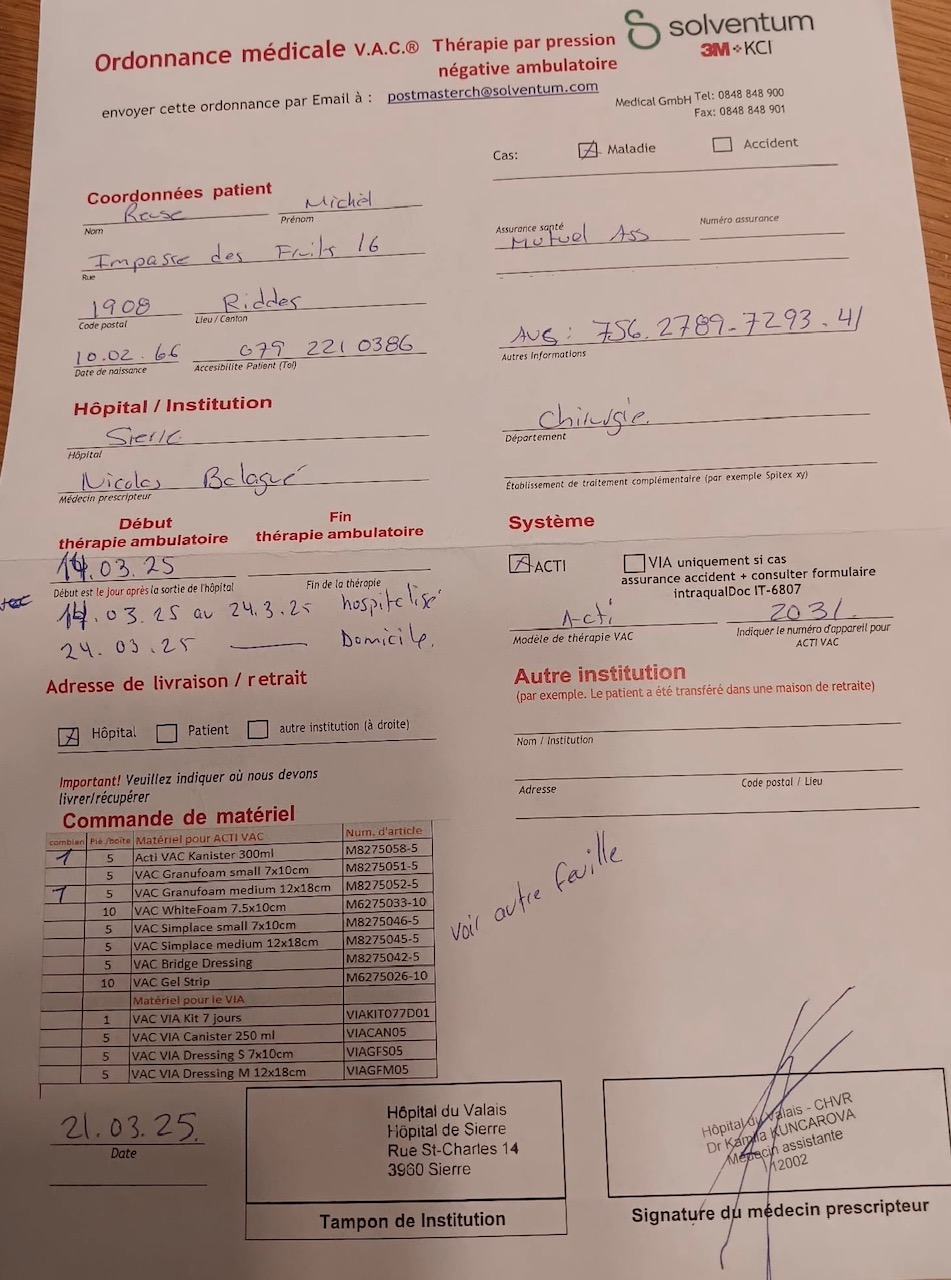 Ordonnance médicale V.A.C.® Thérapie par pression négative ambulatoire
solventum
3M KCI
envoyer cette ordonnance par Email à : postmasterch@solventum.com
Medical GmbH Tel: 0848 848 900
Fax: 0848 848 901
Cas: Maladie Accident
Coordonnées patient
Reuse Michel
Nom Prénom
Assurance santé Numéro assurance
Mutuel Ass
Impasse des Fruits 16
Rue
1908 Riddes
Code postal Lieu / Canton
AVS : 756.2789.7293.41
Autres Informations
10.02.66 079 221 0386
Date de naissance Accesibilite Patient (Tel)
Hôpital / Institution
Sierre
Hôpital
Chirurgie
Département
Nicolas Balagué
Médecin prescripteur
Établissement de traitement complémentaire (par exemple Spitex xy)
Début thérapie ambulatoire
Fin thérapie ambulatoire
.03.25
Début est le jour après la sortie de l'hôpital
Fin de la thérapie
.03.25 au 24.3.25 hospitalisé
24.03.25 — Domicile.
Système
ACTI
VIA uniquement si cas
assurance accident + consulter formulaire
intraqualDoc IT-6807
Acti 2031
Modèle de thérapie VAC
Indiquer le numéro d'appareil pour
ACTI VAC
Adresse de livraison / retrait
Hôpital Patient autre institution (à droite)
Important! Veuillez indiquer où nous devons
livrer/récupérer
Autre institution
(par exemple. Le patient a été transféré dans une maison de retraite)
Nom / Institution
Adresse Code postal / Lieu
Commande de matériel
combien Pie./boîte Matériel pour ACTI VAC Num. d'article
1 5 Acti VAC Kanister 300ml M8275058-5
5 VAC Granufoam small 7x10cm M8275051-5
1 5 VAC Granufoam medium 12x18cm M8275052-5
10 VAC WhiteFoam 7.5x10cm M6275033-10
5 VAC Simplace small 7x10cm M8275046-5
5 VAC Simplace medium 12x18cm M8275045-5
5 VAC Bridge Dressing M8275042-5
10 VAC Gel Strip M6275026-10
Matériel pour le VIA
1 VAC VIA Kit 7 jours VIAKIT077D01
5 VAC VIA Canister 250 ml VIACAN05
5 VAC VIA Dressing S 7x10cm VIAGFS05
5 VAC VIA Dressing M 12x18cm VIAGFM05
voir autre feuille
21.03.25.
Date
Hôpital du Valais
Hôpital de Sierre
Rue St-Charles 14
3960 Sierre
Tampon de Institution
Hôpital du Valais - CHVR
Dr Kamila KUNCAROVA
Médecin assistante
12002
Signature du médecin prescripteur